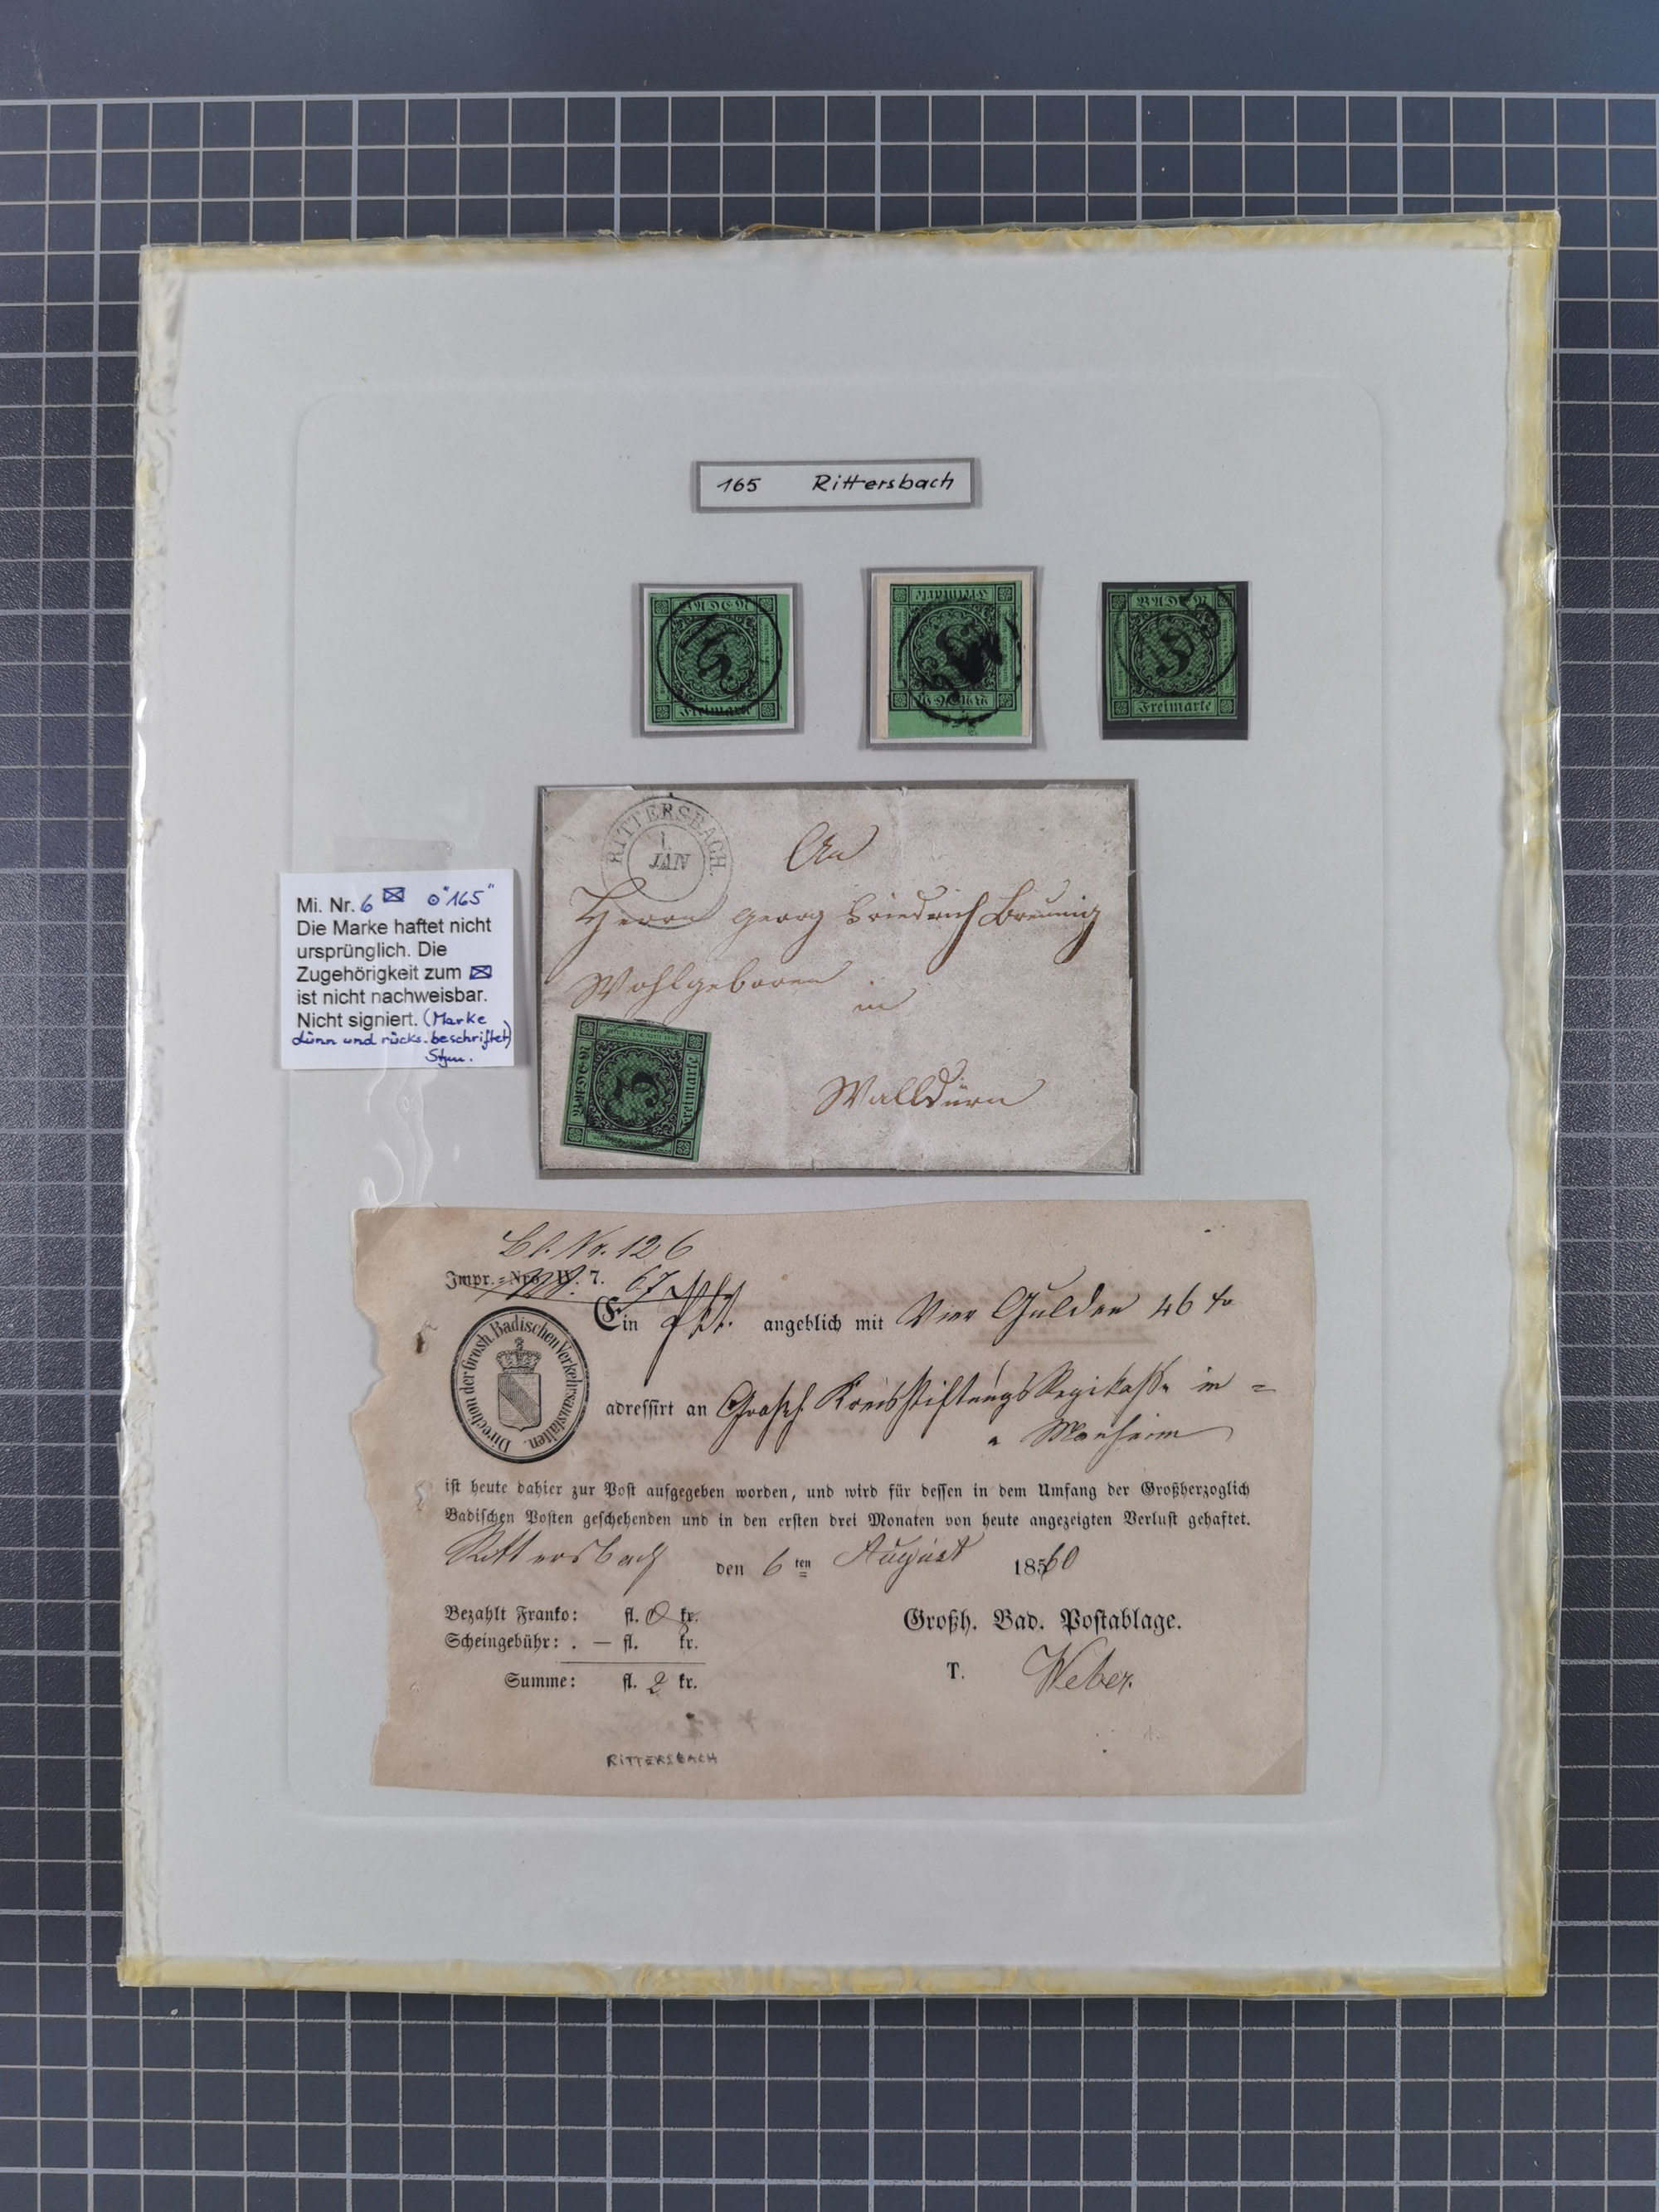 165 Rittersbach
BADEN
Freimarke
Freimarke
BADEN
BADEN
Freimarke
RITTERSBACH.
1.
JAN
An
Herrn Georg Friedrich Breunig
Wohlgeboren
in
Walldürn
BADEN
Freimarke
Mi. Nr. 6 "165"
Die Marke haftet nicht
ursprünglich. Die
Zugehörigkeit zum
ist nicht nachweisbar.
Nicht signiert. (Marke
dünn und rücks. beschriftet)
Nr. 126
Impr.=Nro. IV. 7. 67
Ein Pkt. angeblich mit Vier Gulden 46 kr
Direction der Grosh. Badischen Verkehrsanstalten.
adressirt an Grosh. Kreisstiftungs in =
= Manheim
ist heute dahier zur Post aufgegeben worden, und wird für dessen in dem Umfang der Großherzoglich
Badischen Posten geschehenden und in den ersten drei Monaten von heute angezeigten Verlust gehaftet.
Rittersbach den 6 ten August 1860
Bezahlt Franko: fl. kr.
Scheingebühr: . — fl. kr.
Summe: fl. 2 kr.
Großh. Bad. Postablage.
T. Weber.
RITTERSBACH